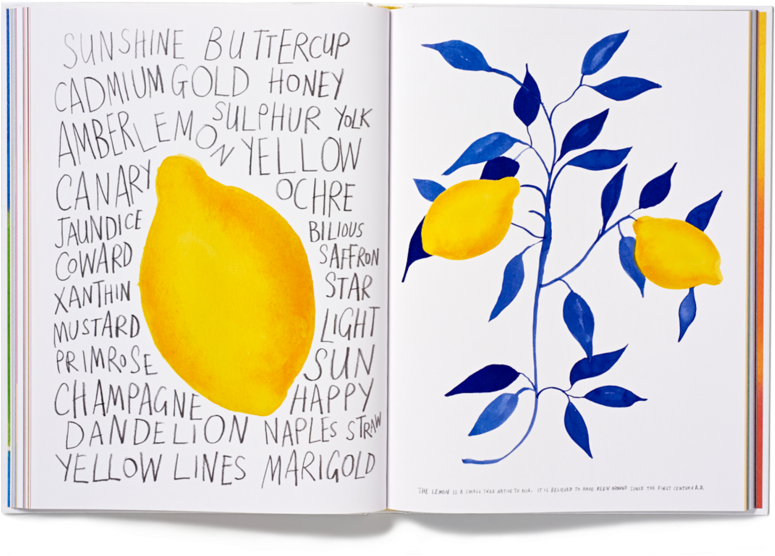 SUNSHINE BUTTERCUP
CADMIUM GOLD HONEY
AMBER LEMON SULPHUR YOLK
YELLOW
CANARY OCHRE
JAUNDICE BILIOUS
COWARD SAFFRON
XANTHIN STAR
MUSTARD LIGHT
PRIMROSE SUN
CHAMPAGNE HAPPY
DANDELION NAPLES STRAW
YELLOW LINES MARIGOLD
THE LEMON IS A SMALL TREE NATIVE TO ASIA. IT IS BELIEVED TO HAVE BEEN AROUND SINCE THE FIRST CENTURY A.D.